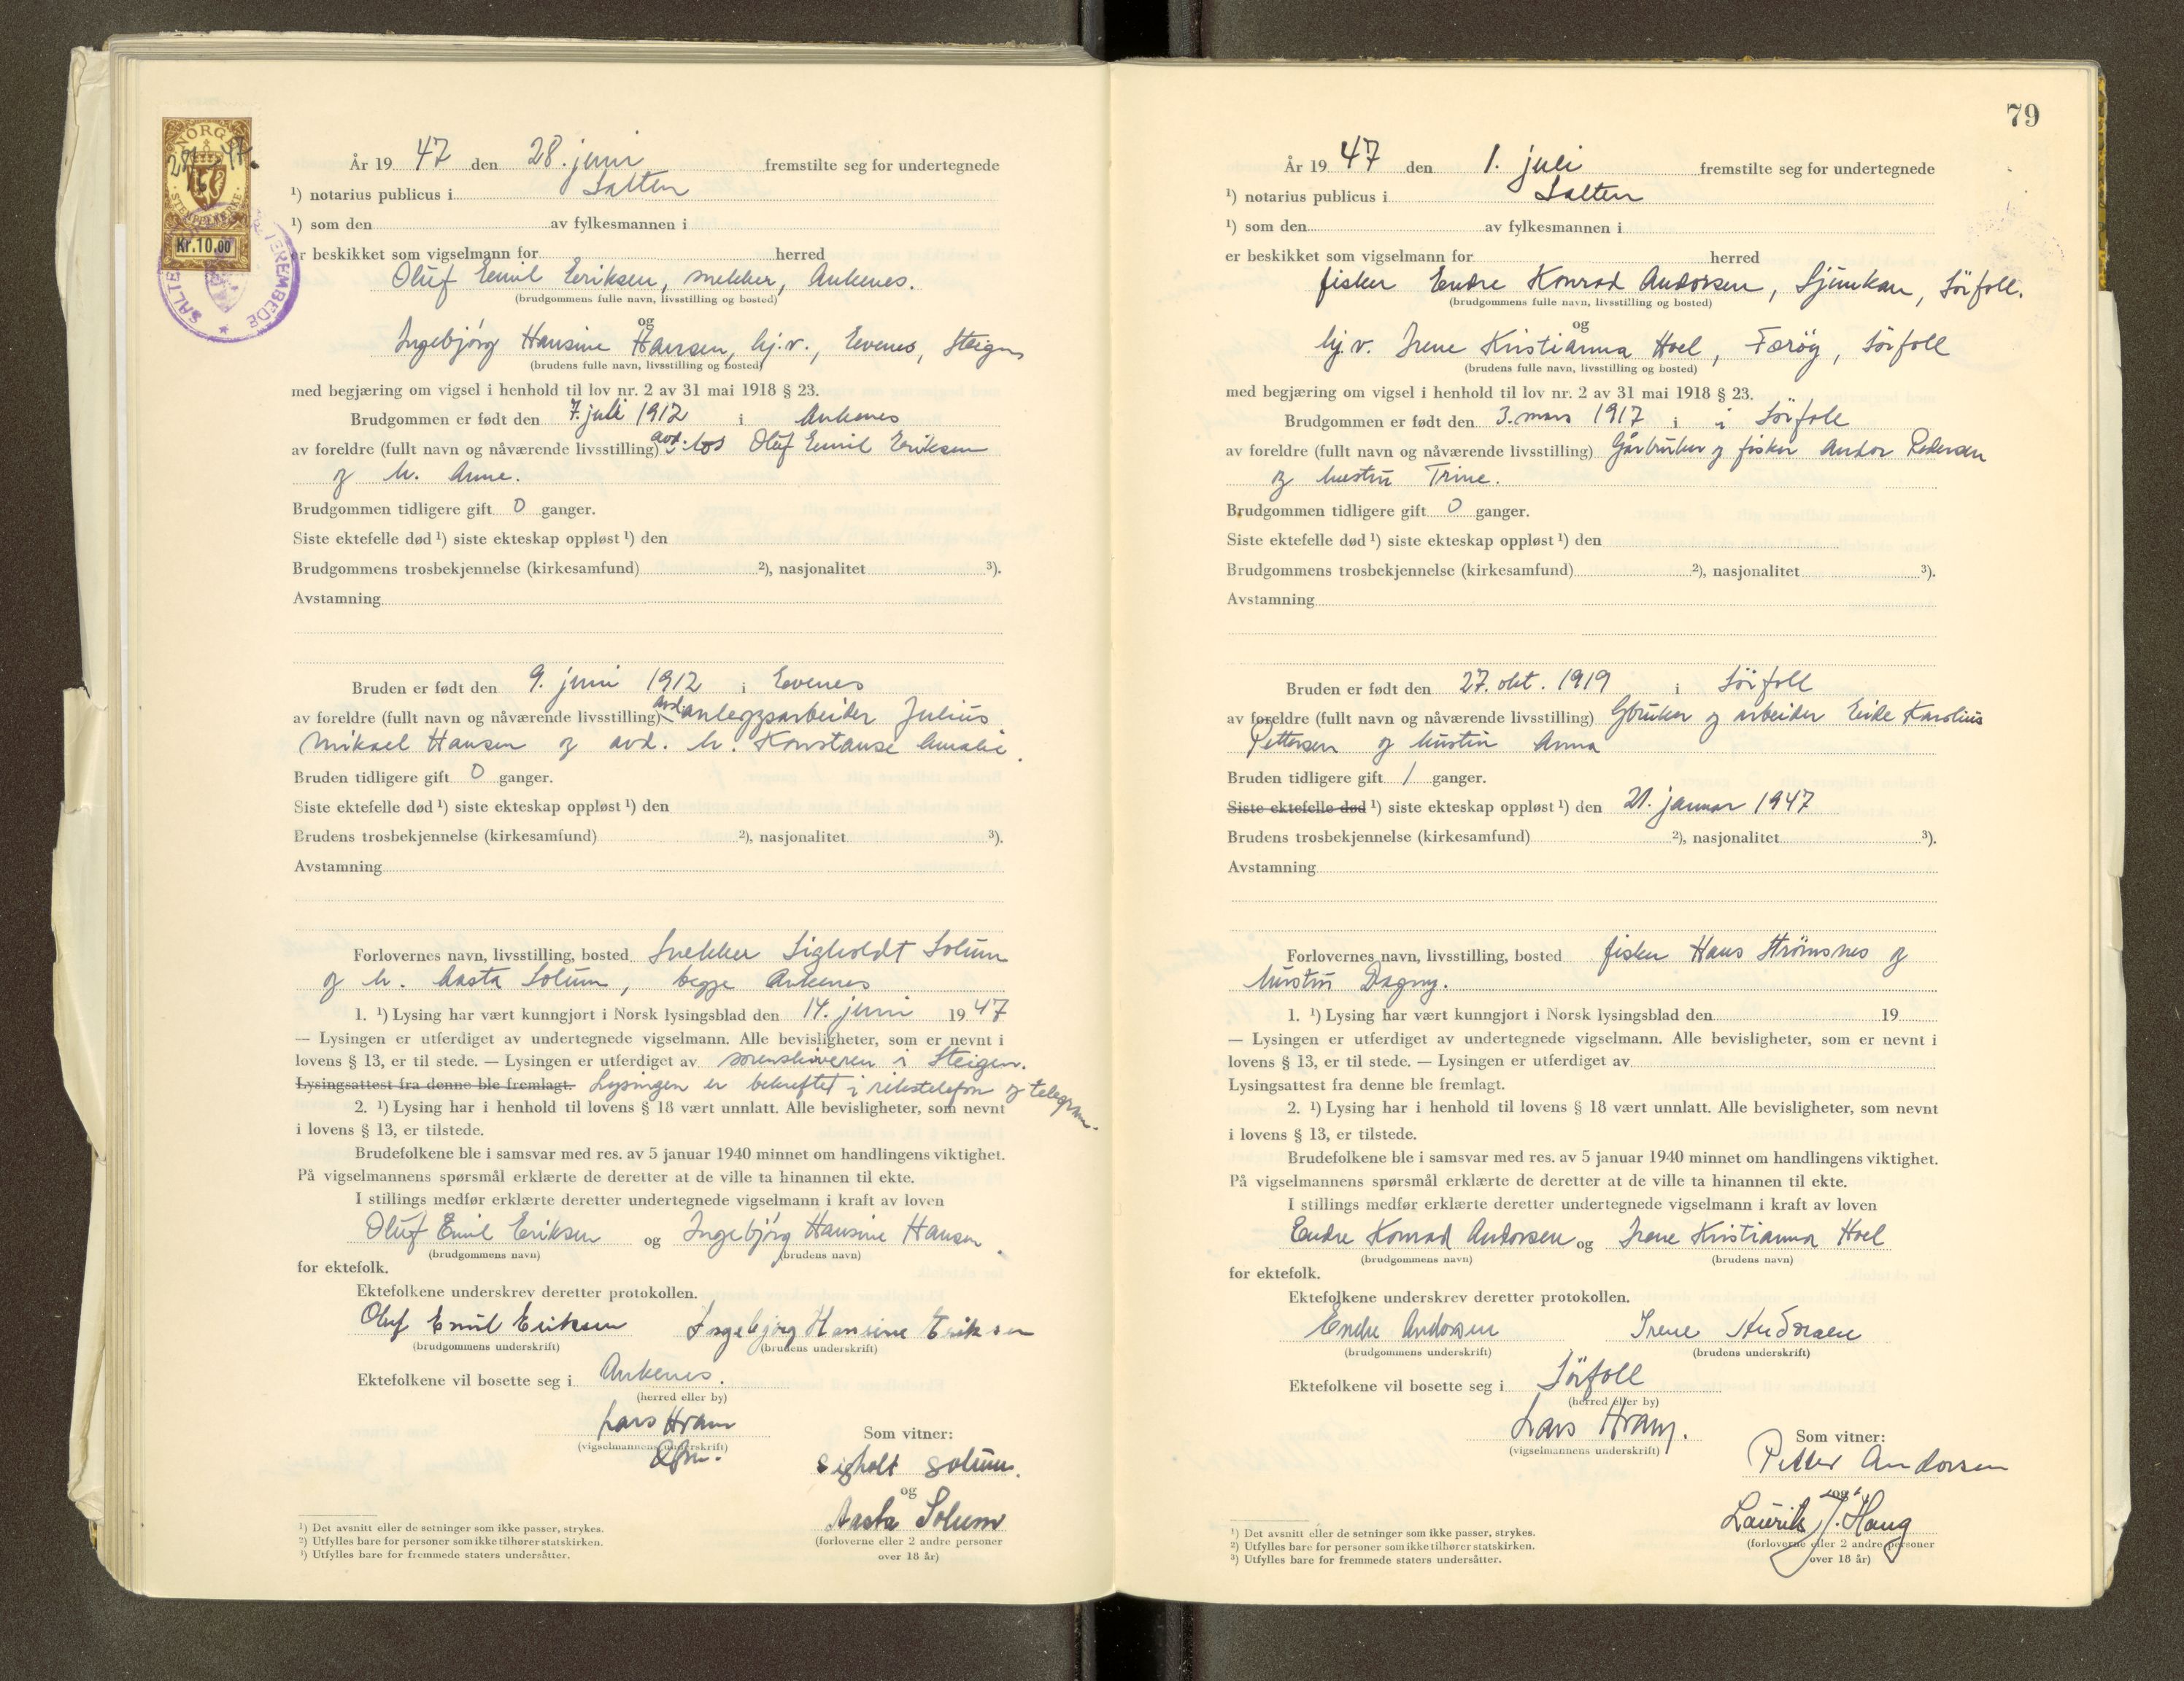 NORGE
28/6 47.
STEMPELMERKE
Kr.10.00
SALTEN
SKRIVEREMBEDE
År 19 47 den 28. juni fremstilte seg for undertegnede
¹) notarius publicus i Salten
¹) som den av fylkesmannen i
er beskikket som vigselmann for herred
Oluf Emil Eriksen, snekker, Ankenes.
(brudgommens fulle navn, livsstilling og bosted)
og
Ingebjörg Hansine Hansen, hj.v., Evenes, Steigen
(brudens fulle navn, livsstilling og bosted)
med begjæring om vigsel i henhold til lov nr. 2 av 31 mai 1918 § 23.
Brudgommen er født den 7. juli 1912 i Ankenes
av foreldre (fullt navn og nåværende livsstilling) avd. los Oluf Emil Eriksen
og h. Anne.
Brudgommen tidligere gift 0 ganger.
Siste ektefelle død ¹) siste ekteskap oppløst ¹) den
Brudgommens trosbekjennelse (kirkesamfund) ²), nasjonalitet ³).
Avstamning
Bruden er født den 9. juni 1912 i Evenes
av foreldre (fullt navn og nåværende livsstilling) avd. anleggsarbeider Julius
Mikael Hansen og avd. h. Konstanse Amalie.
Bruden tidligere gift 0 ganger.
Siste ektefelle død ¹) siste ekteskap oppløst ¹) den
Brudens trosbekjennelse (kirkesamfund) ²), nasjonalitet ³).
Avstamning
Forlovernes navn, livsstilling, bosted Snekker Sigholdt Solum
og h. Aasta Solum, begge Ankenes
1. ¹) Lysing har vært kunngjort i Norsk lysingsblad den 14. juni 19 47
— Lysingen er utferdiget av undertegnede vigselmann. Alle bevisligheter, som er nevnt i
lovens § 13, er til stede. — Lysingen er utferdiget av sorenskriveren i Steigen.
Lysingsattest fra denne ble fremlagt. Lysingen er bekreftet i rikstelefon og telegram.
2. ¹) Lysing har i henhold til lovens § 18 vært unnlatt. Alle bevisligheter, som nevnt
i lovens § 13, er tilstede.
Brudefolkene ble i samsvar med res. av 5 januar 1940 minnet om handlingens viktighet.
På vigselmannens spørsmål erklærte de deretter at de ville ta hinannen til ekte.
I stillings medfør erklærte deretter undertegnede vigselmann i kraft av loven
Oluf Emil Eriksen og Ingebjörg Hansine Hansen.
(brudgommens navn) (brudens navn)
for ektefolk.
Ektefolkene underskrev deretter protokollen.
Oluf Emil Eriksen Ingebjørg Hansine Eriksen
(brudgommens underskrift) (brudens underskrift)
Ektefolkene vil bosette seg i Ankenes.
(herred eller by)
Lars Hram
(vigselmannens underskrift)
Som vitner:
Sigholt Solum.
og
Aasta Solum
(forloverne eller 2 andre personer
over 18 år)
¹) Det avsnitt eller de setninger som ikke passer, strykes.
²) Utfylles bare for personer som ikke tilhører statskirken.
³) Utfylles bare for fremmede staters undersåtter.
79
År 19 47 den 1. juli fremstilte seg for undertegnede
¹) notarius publicus i Salten
¹) som den av fylkesmannen i
er beskikket som vigselmann for herred
fisker Endre Konrad Andorsen, Sjunkan, Sörfoll.
(brudgommens fulle navn, livsstilling og bosted)
og
hj.v. Irene Kristianna Hoel, Færöy, Sörfoll
(brudens fulle navn, livsstilling og bosted)
med begjæring om vigsel i henhold til lov nr. 2 av 31 mai 1918 § 23.
Brudgommen er født den 3. mars 1917 i i Sörfoll
av foreldre (fullt navn og nåværende livsstilling) Gårbruker og fisker Andor Pedersen
og hustru Trine.
Brudgommen tidligere gift 0 ganger.
Siste ektefelle død ¹) siste ekteskap oppløst ¹) den
Brudgommens trosbekjennelse (kirkesamfund) ²), nasjonalitet ³).
Avstamning
Bruden er født den 27. okt. 1919 i Sörfoll
av foreldre (fullt navn og nåværende livsstilling) Gbruker og arbeider Eide Karolius
Pettersen og hustru Anna
Bruden tidligere gift 1 ganger.
Siste ektefelle død ¹) siste ekteskap oppløst ¹) den 21. januar 1947
Brudens trosbekjennelse (kirkesamfund) ²), nasjonalitet ³).
Avstamning
Forlovernes navn, livsstilling, bosted fisker Hans Strömsnes og
hustru Dagny.
1. ¹) Lysing har vært kunngjort i Norsk lysingsblad den 19
— Lysingen er utferdiget av undertegnede vigselmann. Alle bevisligheter, som er nevnt i
lovens § 13, er til stede. — Lysingen er utferdiget av
Lysingsattest fra denne ble fremlagt.
2. ¹) Lysing har i henhold til lovens § 18 vært unnlatt. Alle bevisligheter, som nevnt
i lovens § 13, er tilstede.
Brudefolkene ble i samsvar med res. av 5 januar 1940 minnet om handlingens viktighet.
På vigselmannens spørsmål erklærte de deretter at de ville ta hinannen til ekte.
I stillings medfør erklærte deretter undertegnede vigselmann i kraft av loven
Endre Konrad Andorsen og Irene Kristianna Hoel
(brudgommens navn) (brudens navn)
for ektefolk.
Ektefolkene underskrev deretter protokollen.
Endre Andorsen Irene Andorsen
(brudgommens underskrift) (brudens underskrift)
Ektefolkene vil bosette seg i Sörfoll
(herred eller by)
Lars Hram.
(vigselmannens underskrift)
Som vitner:
Petter Andorsen
og
Laurik J. Haug
(forloverne eller 2 andre personer
over 18 år)
¹) Det avsnitt eller de setninger som ikke passer, strykes.
²) Utfylles bare for personer som ikke tilhører statskirken.
³) Utfylles bare for fremmede staters undersåtter.